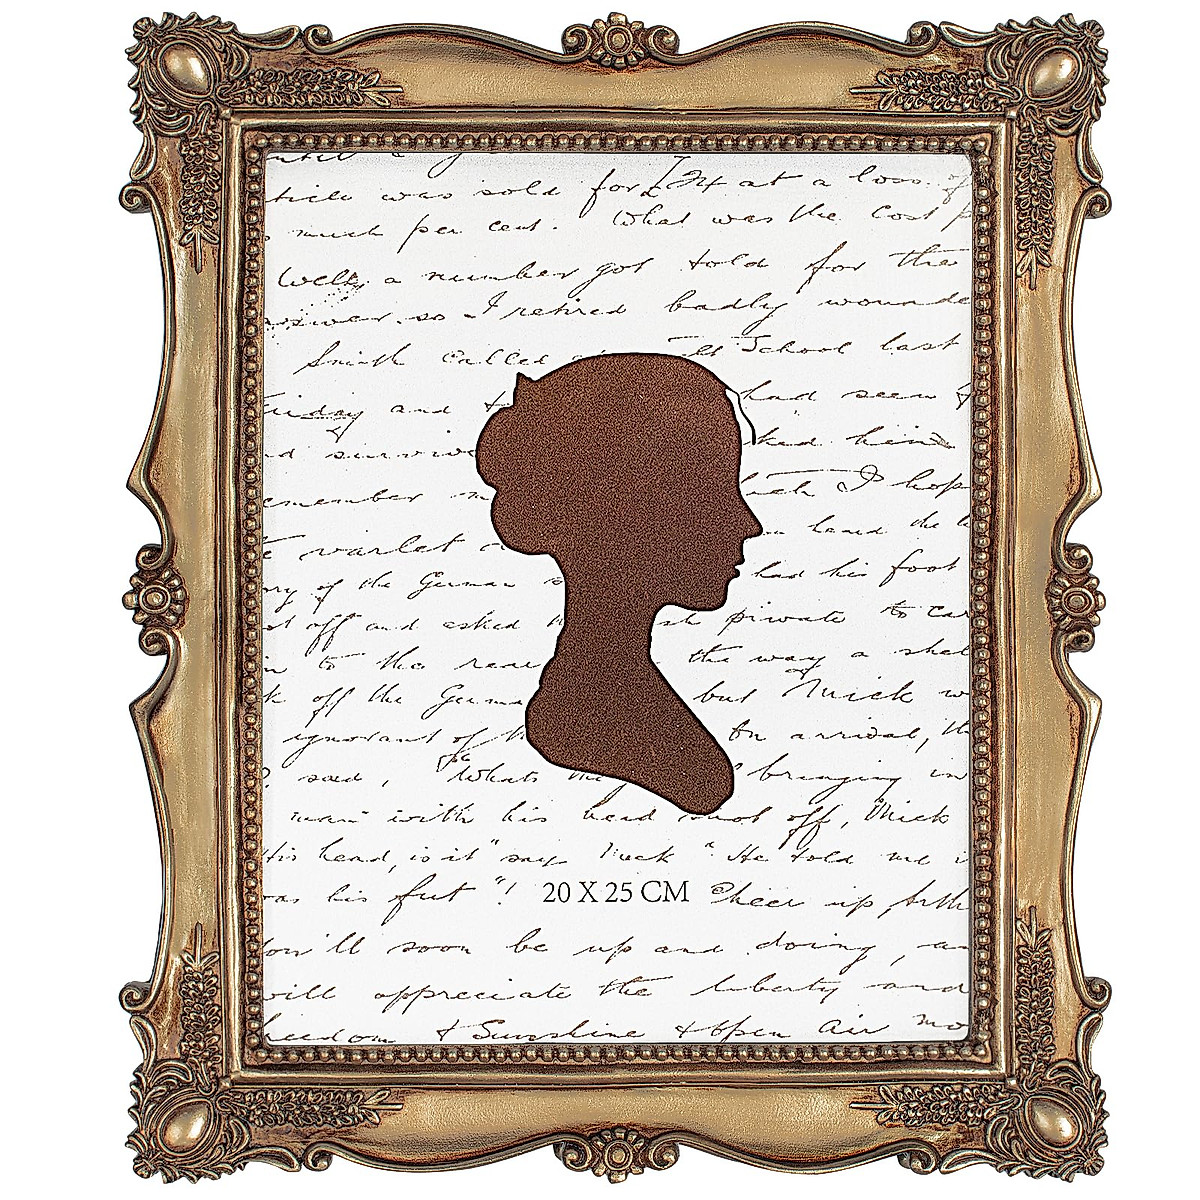 was sold for £24 at a loss of
much per cent. What was the cost p
Well, a number got told for the
nswer. so I retired badly wounde
Smith called School last
riday and had seen
d surviv ked him
emember hich I hop
e varlet heard the
ny of the German had his foot
t off and asked private to car
n to the rear the way a shel
k off the German but Mick w
ignorant of On arrival, th
said, "Whats the bringing in
man with his head shot off, Mick
his head, is it" say Mick "He told me i
was his fut"! 20 X 25 CM Cheer up, Arth
You'll soon be up and doing, an
will appreciate the liberty and
reedom & Sunshine & open air mo